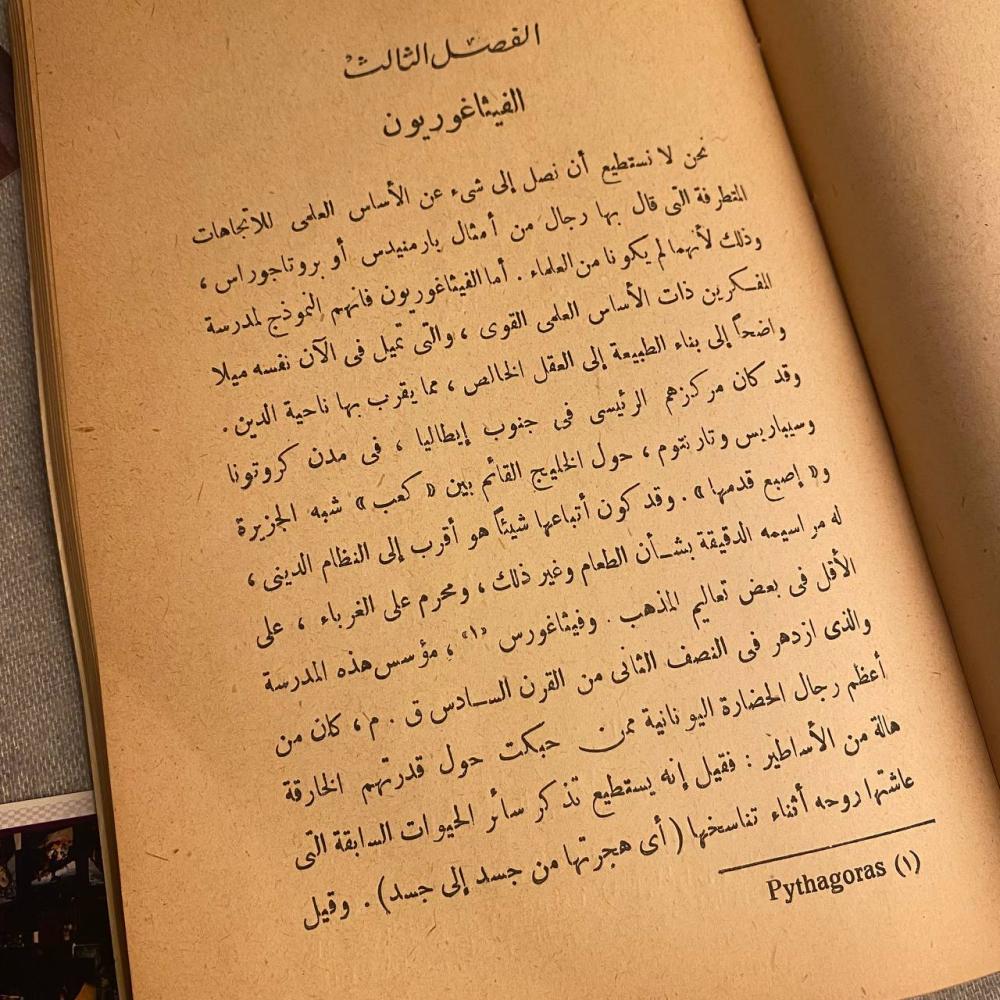 الفصل الثالث
الفيثاغوريون
نحن لا نستطيع أن نصل إلى شىء عن الأساس العلمى للاتجاهات
المتطرفة التى قال بها رجال من أمثال بارمنيدس أو بروتاجوراس ،
وذلك لأنهما لم يكونا من العلماء . أما الفيثاغوريون فانهم النموذج لمدرسة
المفكرين ذات الأساس العلمى القوى ، والتى تميل فى الآن نفسه ميلا
واضحاً إلى بناء الطبيعة إلى العقل الخالص ، مما يقرب بها ناحية الدين .
وقد كان مركزهم الرئيسى فى جنوب إيطاليا ، فى مدن كروتونا
وسيباريس وتارنتوم ، حول الخليج القائم بين « كعب » شبه الجزيرة
و« إصبع قدمها » . وقد كون أتباعها شيئاً هو أقرب إلى النظام الدينى ،
له مراسيمه الدقيقة بشأن الطعام وغير ذلك ، ومحرم على الغرباء ، على
الأقل فى بعض تعاليم المذهب . وفيثاغورس «١» ، مؤسس هذه المدرسة
والذى ازدهر فى النصف الثانى من القرن السادس ق . م ، كان من
أعظم رجال الحضارة اليونانية ممن حبكت حول قدرتهم الخارقة
هالة من الأساطير : فقيل إنه يستطيع تذكر سائر الحيوات السابقة التى
عاشتها روحه أثناء تناسخها ( أى هجرتها من جسد إلى جسد ) . وقيل
(١) Pythagoras